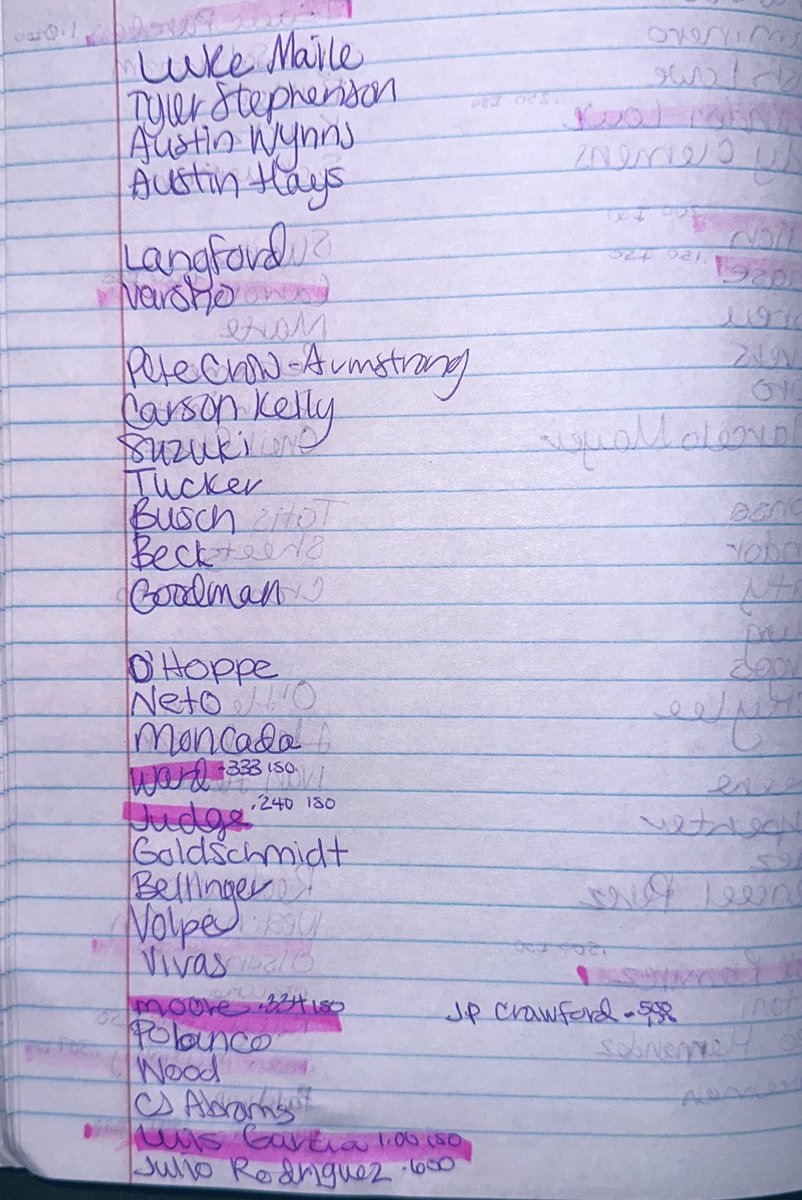 Luke Maile
Tyler Stephenson
Austin Wynns
Austin Hays
Langford
Varsho
Pete Crow-Armstrong
Carson Kelly
Suzuki
Tucker
Busch
Beck
Goodman
O'Hoppe
Neto
Moncada
Ward .333 ISO
Judge .240 ISO
Goldschmidt
Bellinger
Volpe
Vivas
Moore .334 ISO JP Crawford
Polanco
Wood
CJ Abrams
Luis Garcia 1.00 ISO
Julio Rodriguez .600